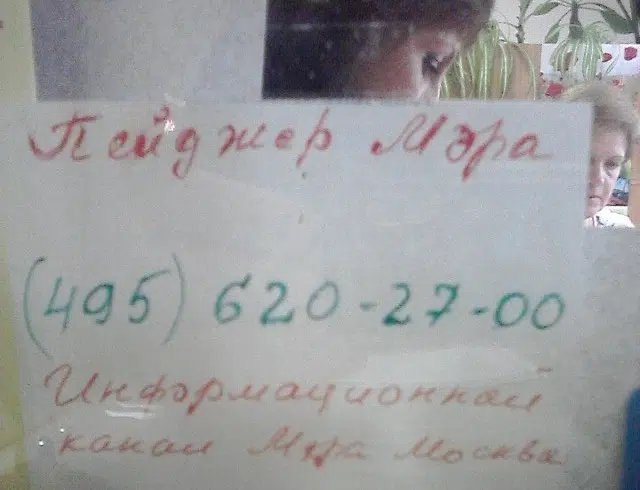 Пейджер Мэра
(495) 620-27-00
Информационный
канал Мэра Москва